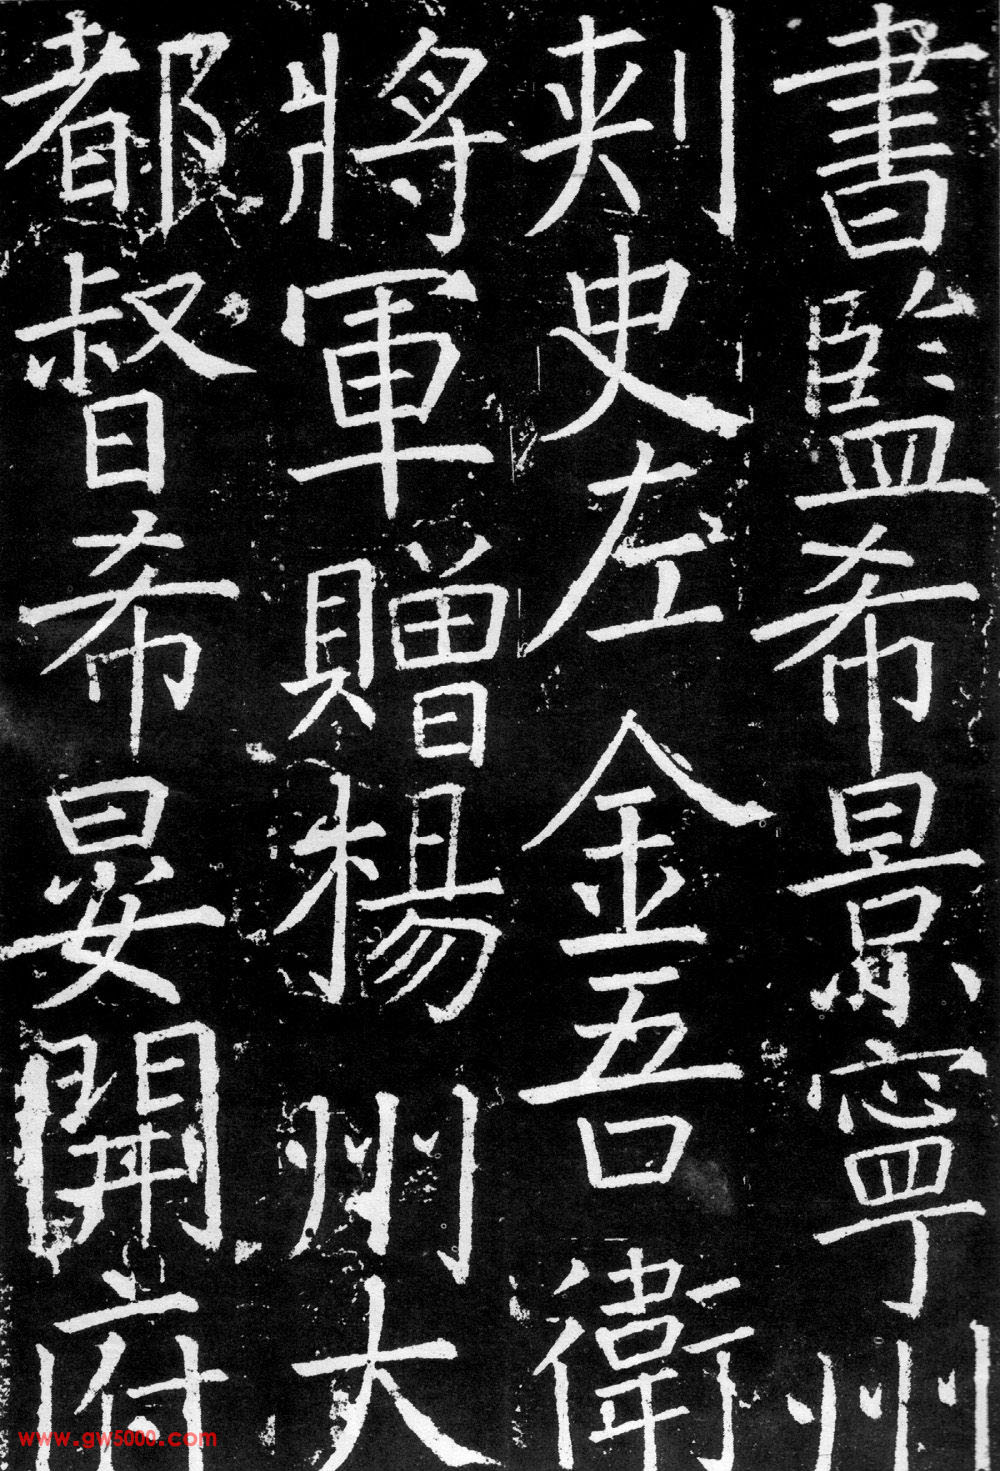 書監希景寧州
刾史左金吾衛
將軍贈楊州大
都督希晏開府
www.gw5000.com